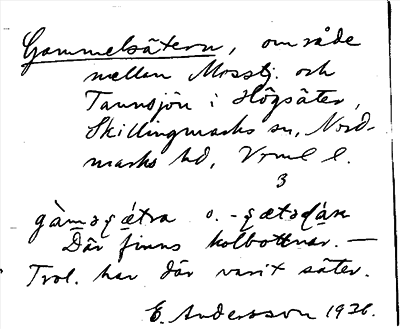 Gammelsätern, område
mellan Mosstj. och
Tannsjön i Högsäter,
Skillingmarks sn, Nord-
marks hd, Vrml l.
3
Där finns kolbottnar. —
Trol. har där varit säter.
E. Andersson 1936.